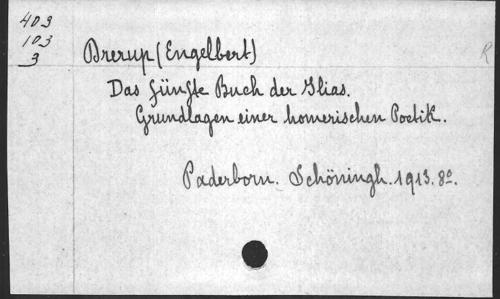 403
103
3
Drerup (Engelbert)
R
Das fünfte Buch der Ilias.
Grundlagen einer homerischen Poetik.
Paderborn. Schöningh. 1913. 8º.